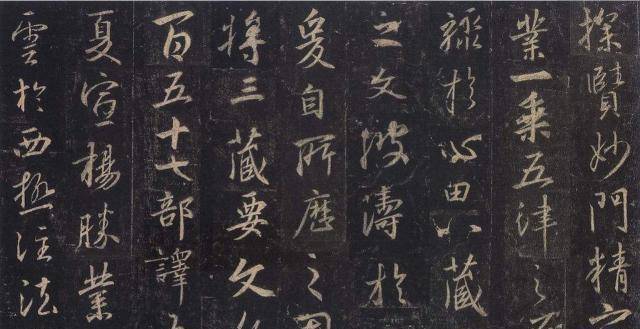 探賾妙門精
業一乘五律之
驟於心田八藏
之文波濤於
爰自所歷之國
將三藏要文
百五十七部譯
夏宣揚勝業
雲於西極注法